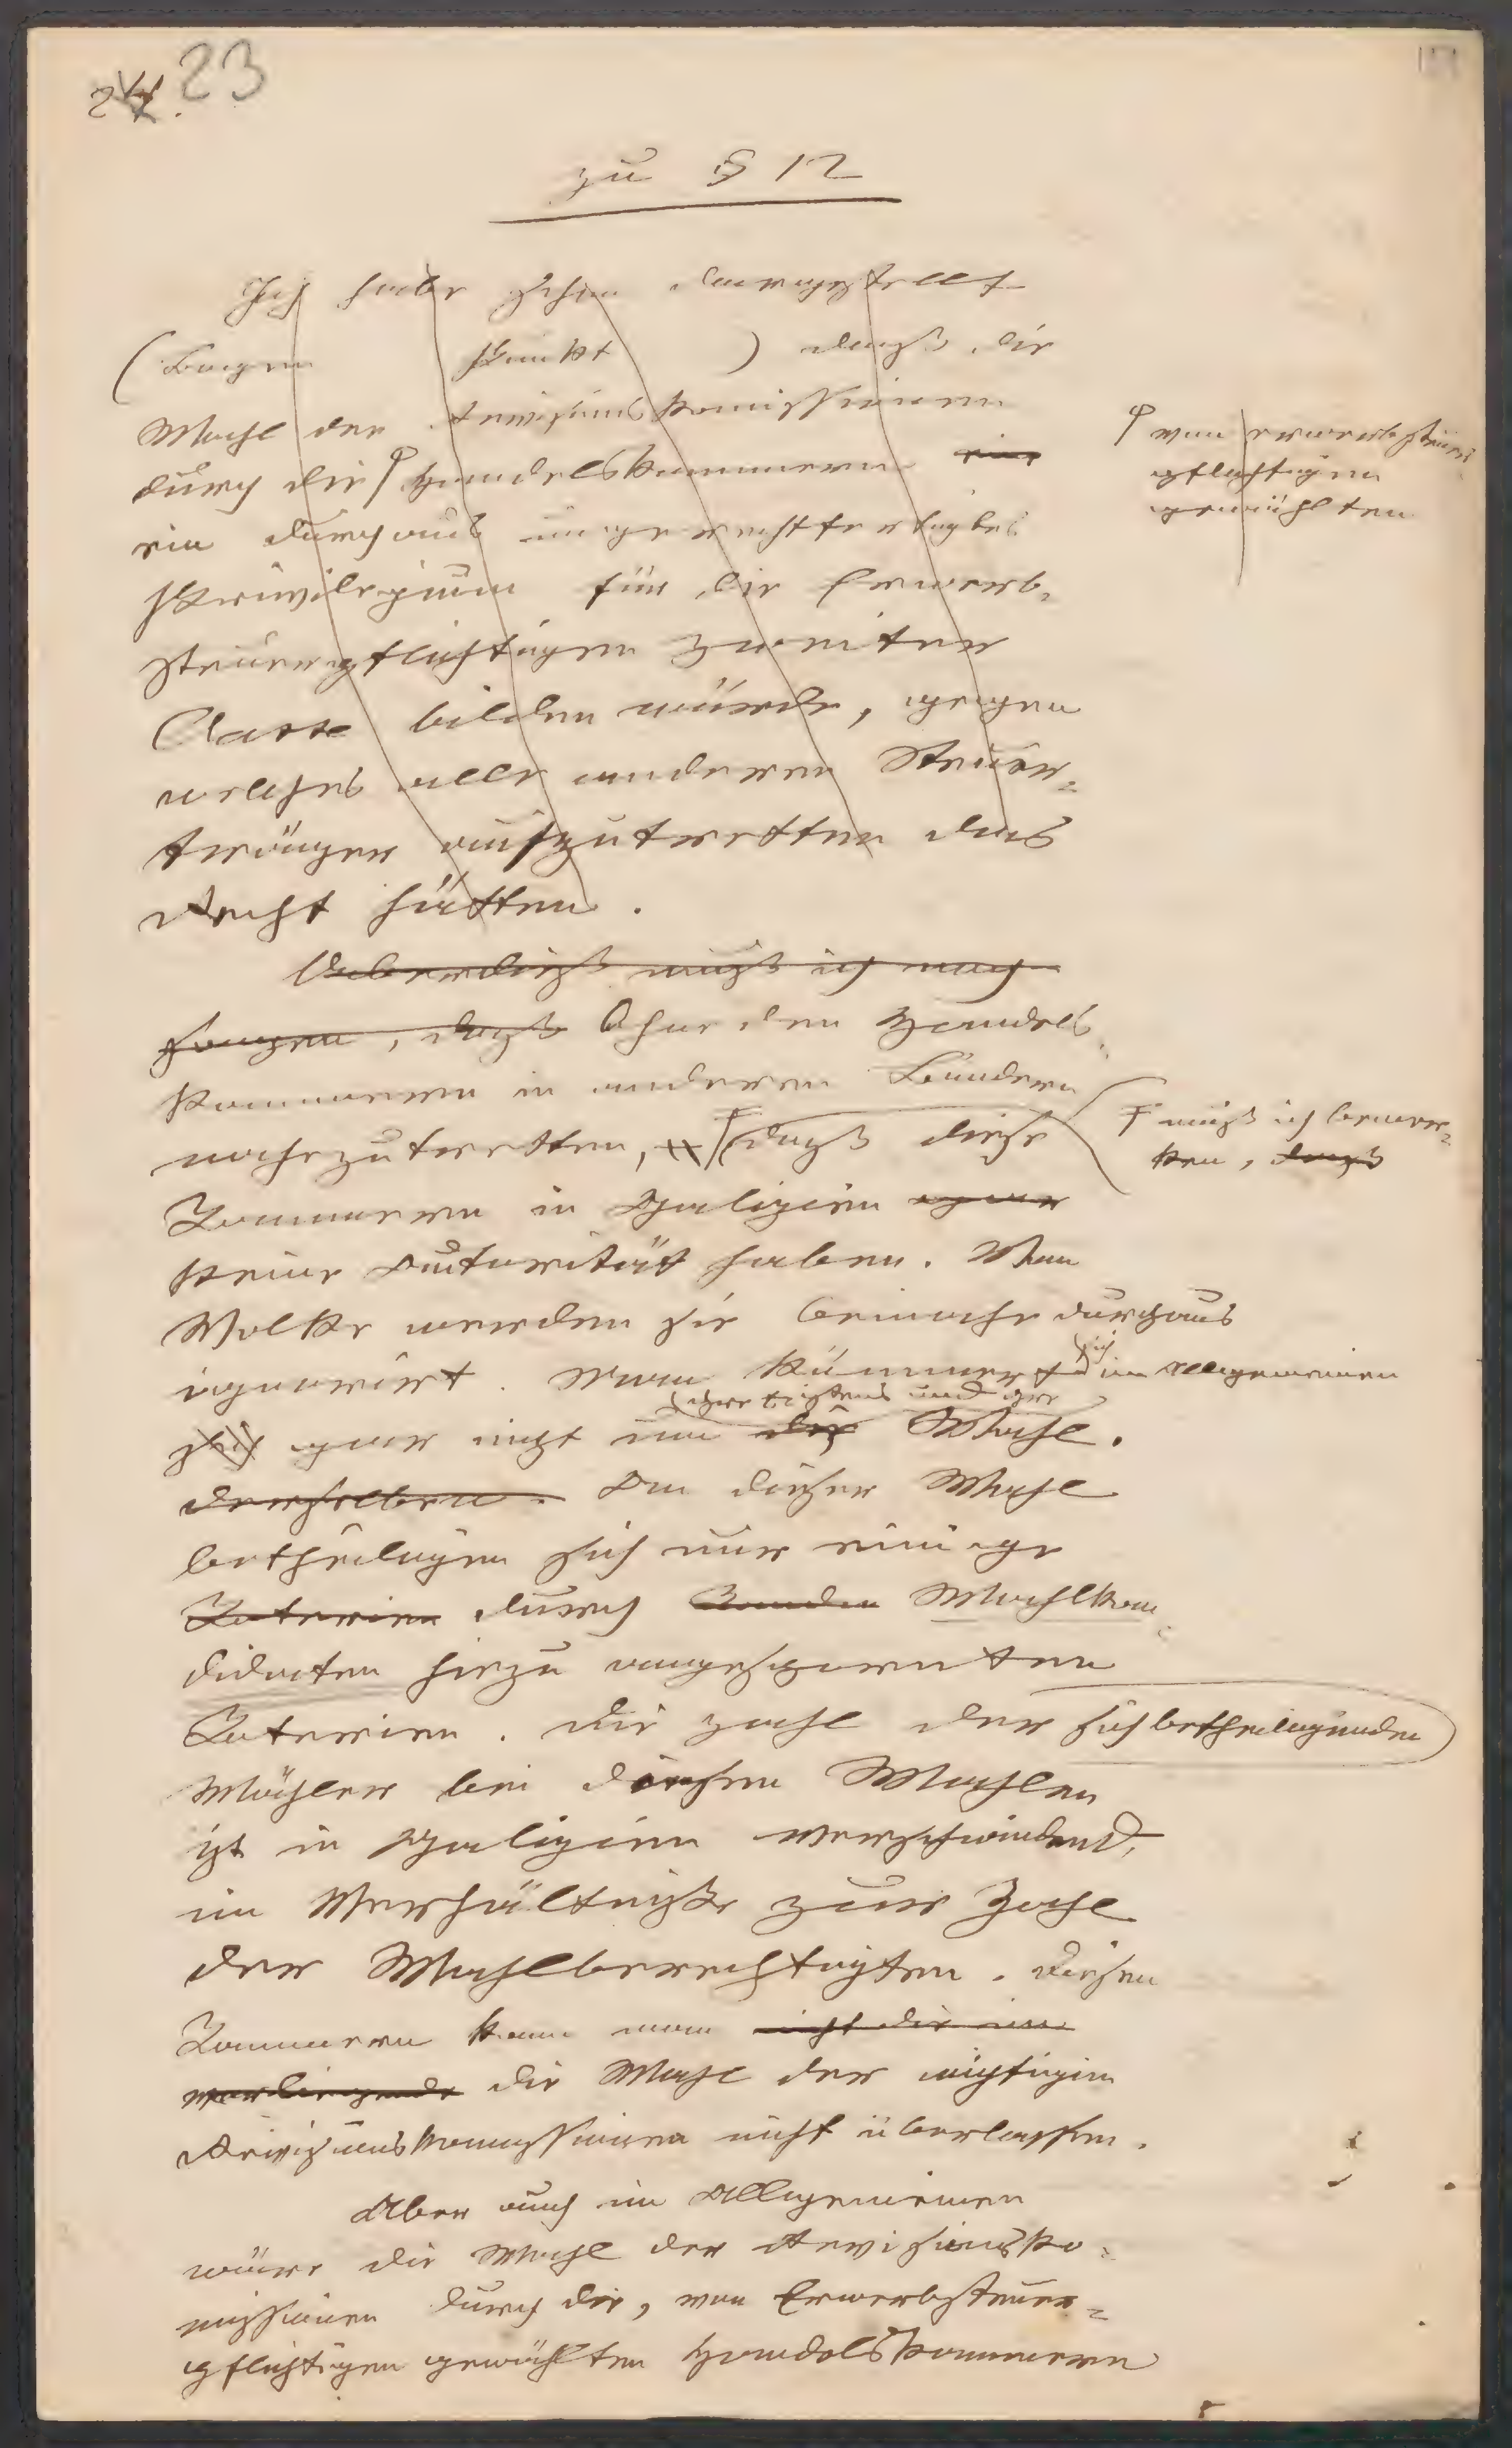 23
zu § 12
Ich habe schon dargestellt
(Bogen Punkt ) dass die
Wahl der Revisionskomissionen
durch die Handelskammern eine
ein durchaus ungerechtfertigtes
Privilegium für die Erwerb-
steuerpflichtigen zweiter
Classe bilden würde, gegen
welches alle anderen Steuer-
träger aufzutretten das
Recht hätten.
von erwerbsteuer-
pflichtigen
gewählten
Ueberdiess muss ich nach
fragen, dass Ohne den Handels-
kammern in anderen Ländern
nahezutretten, dass diese
muss ich bemer-
ken, dass
Kammern in Galizien gar
keine Autorität haben. Vom
Volke werden sie beinahe durchaus
ignorirt. Man kümmert sich im Allgemeinen
Existenz und ihre
sich gar nicht um die Wahl.
derselben. An dieser Wahl
betheiligen sich nur einige
Katerien durch Wahlkan-
didaten hiezu angespornten
Katerien. Die Zahl der sich betheiligenden
Wähler bei diesen Wahlen
ist in Galizien verschwindend,
im Verhältnisse zur Zahl
der Wahlberechtigten. Diesen
Kammern kann man nicht die im
vorliegende die Wahl der wichtigen
Revisionskomissionen nicht überlassen.
Aber auch im Allgemeinen
wäre die Wahl der Revisionsko-
missionen durch die, von Erwerbsteuer-
pflichtigen gewählten Handelskammern